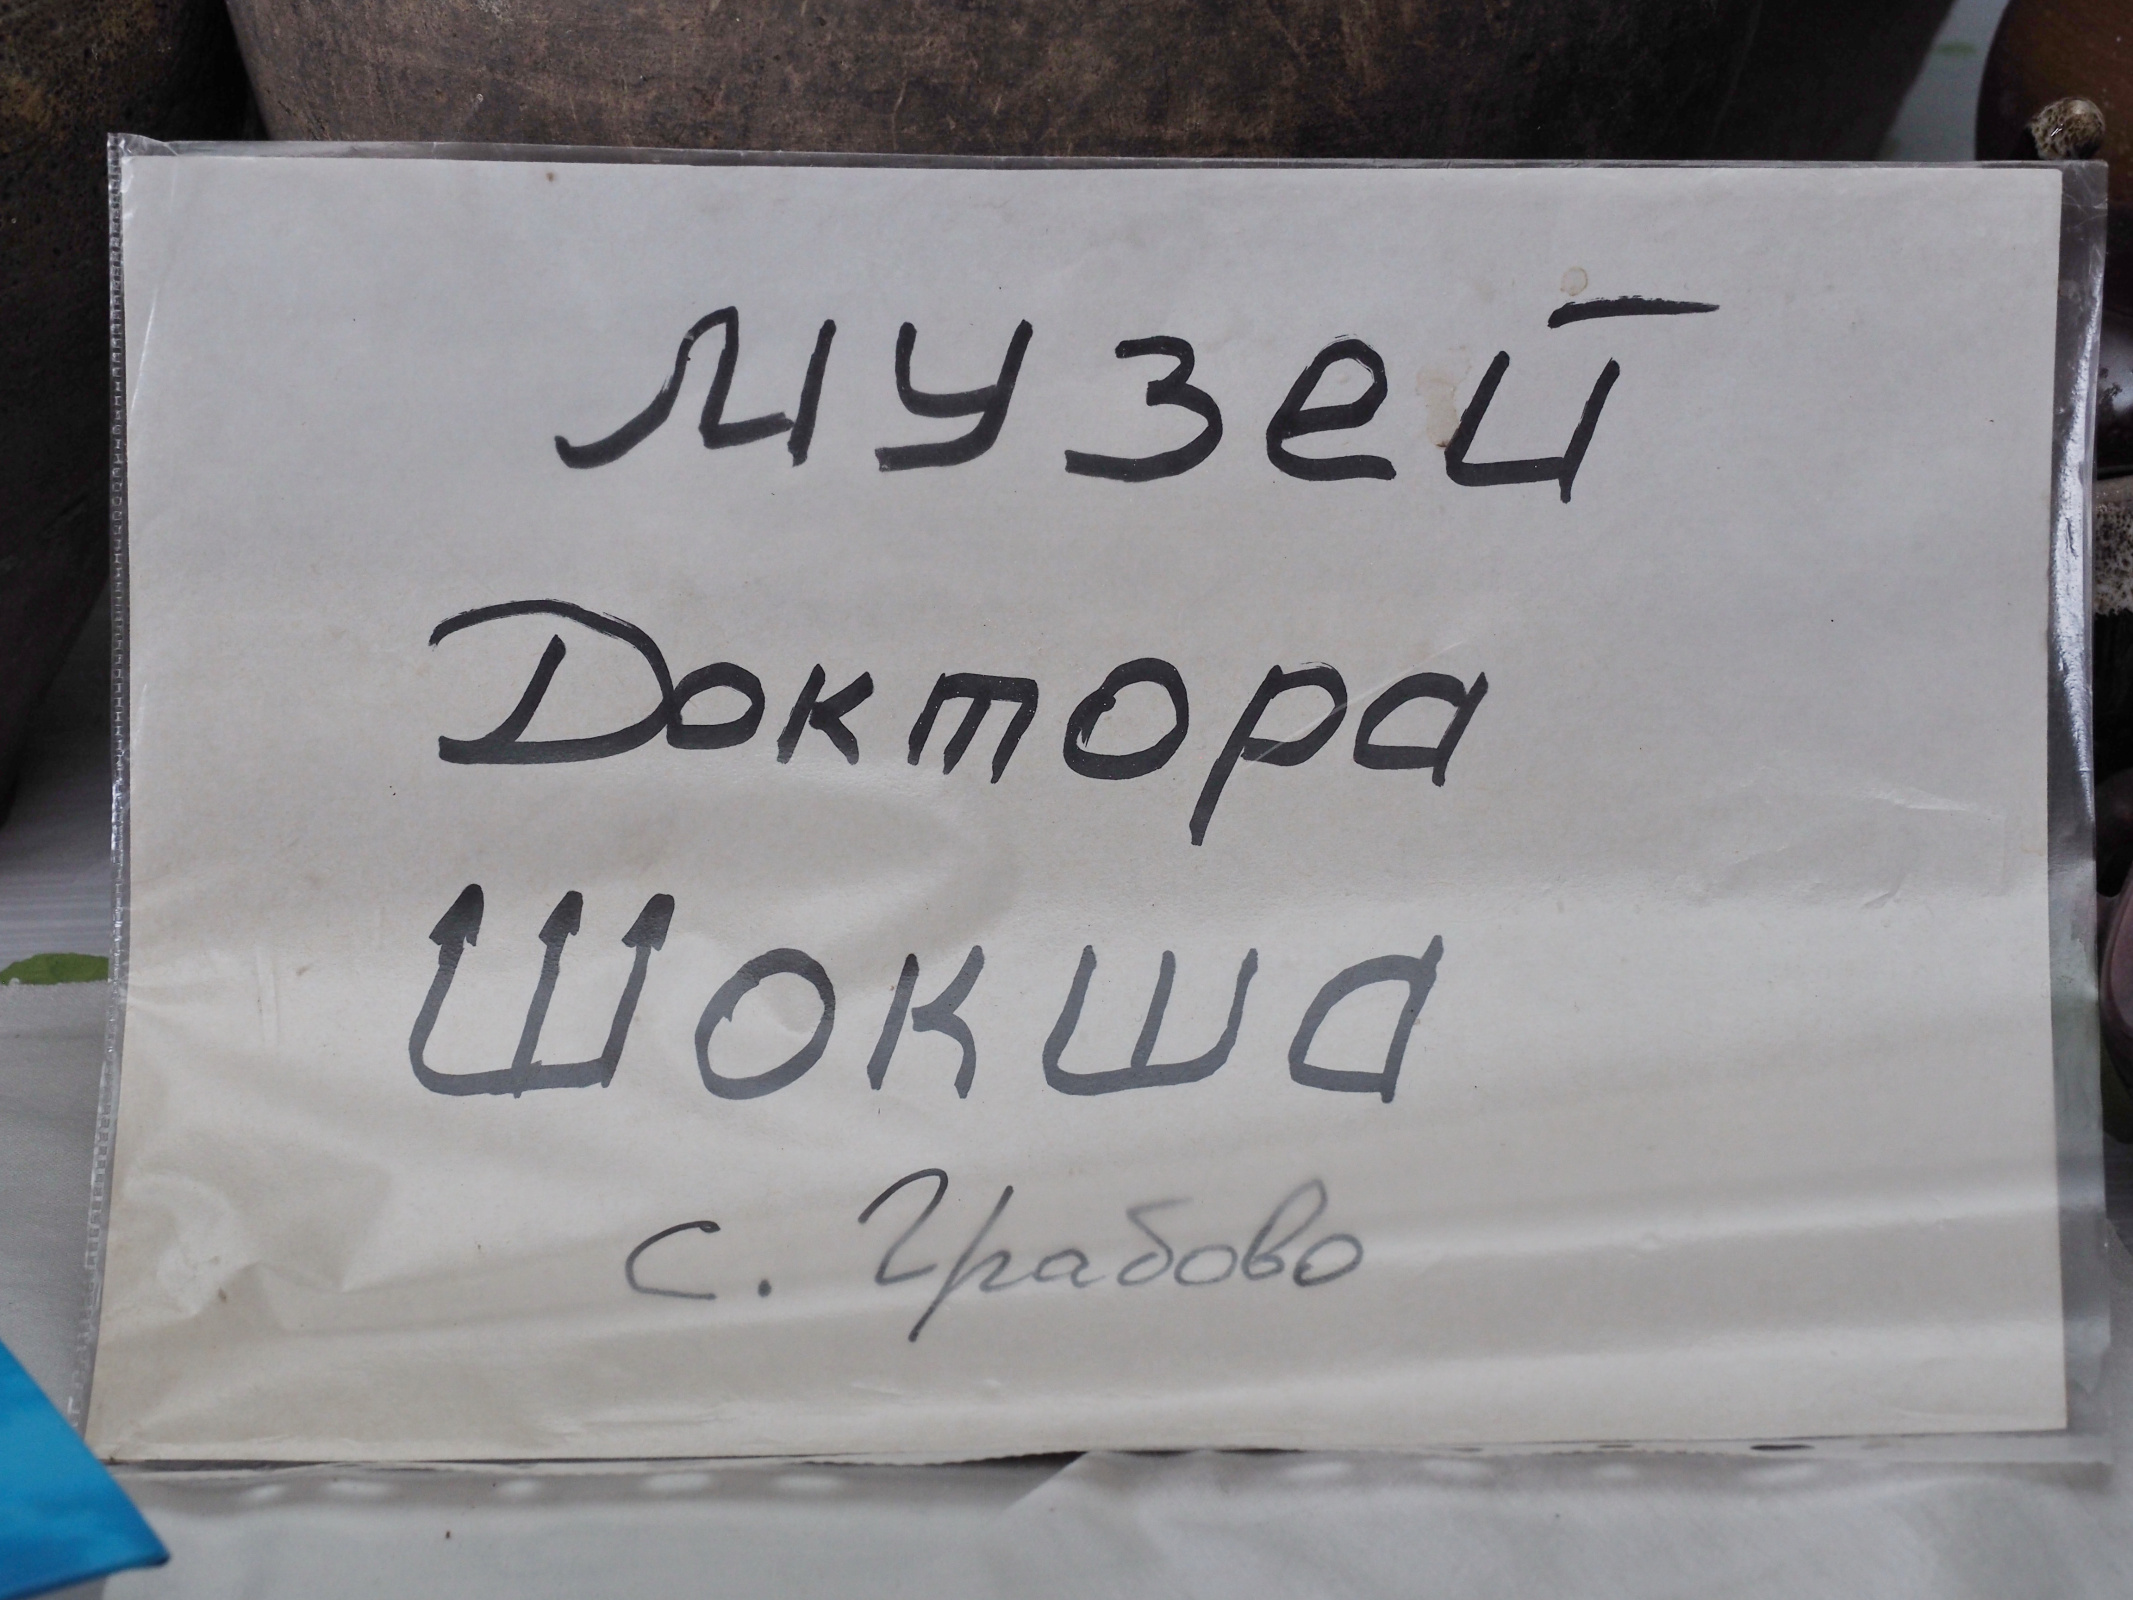 Музей
Доктора
Шокша
с. Грабово